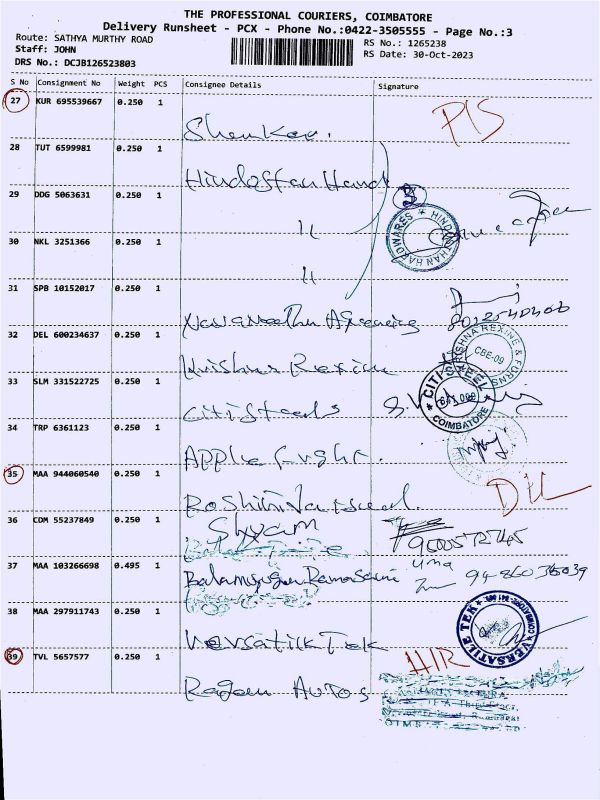 THE PROFESSIONAL COURIERS, COIMBATORE
Delivery Runsheet - PCX - Phone No.:0422-3505555 - Page No.:3
Route: SATHYA MURTHY ROAD
RS No.: 1265238
Staff: JOHN
RS Date: 30-Oct-2023
DRS No.: DCJB126523803
S No Consignment No Weight PCS Consignee Details Signature
27 KUR 695539667 0.250 1
PIS
28 TUT 6599981 0.250 1
Hindostan Hand
29 DDG 5063631 0.250 1
HINDUSTHAN HARDWARES
"
30 NKL 3251366 0.250 1
"
31 SPB 10152017 0.250 1
Navaneetha Agencies
32 DEL 600234637 0.250 1
KRISHNA REXINE & FURNS
CBE-09
Krishna Rexine
33 SLM 331522725 0.250 1
CITI STEEL
COIMBATORE
Citi Steels
34 TRP 6361123 0.250 1
Apple
35 MAA 944060540 0.250 1
DIL
Roshini
36 COM 55237849 0.250 1
Shyam
37 MAA 103266698 0.495 1
Uma
Balamurugan Ramasami
38 MAA 297911743 0.250 1
VERSATILE TEK
Versatile Tek
39 TVL 5657577 0.250 1
HIR
Autos